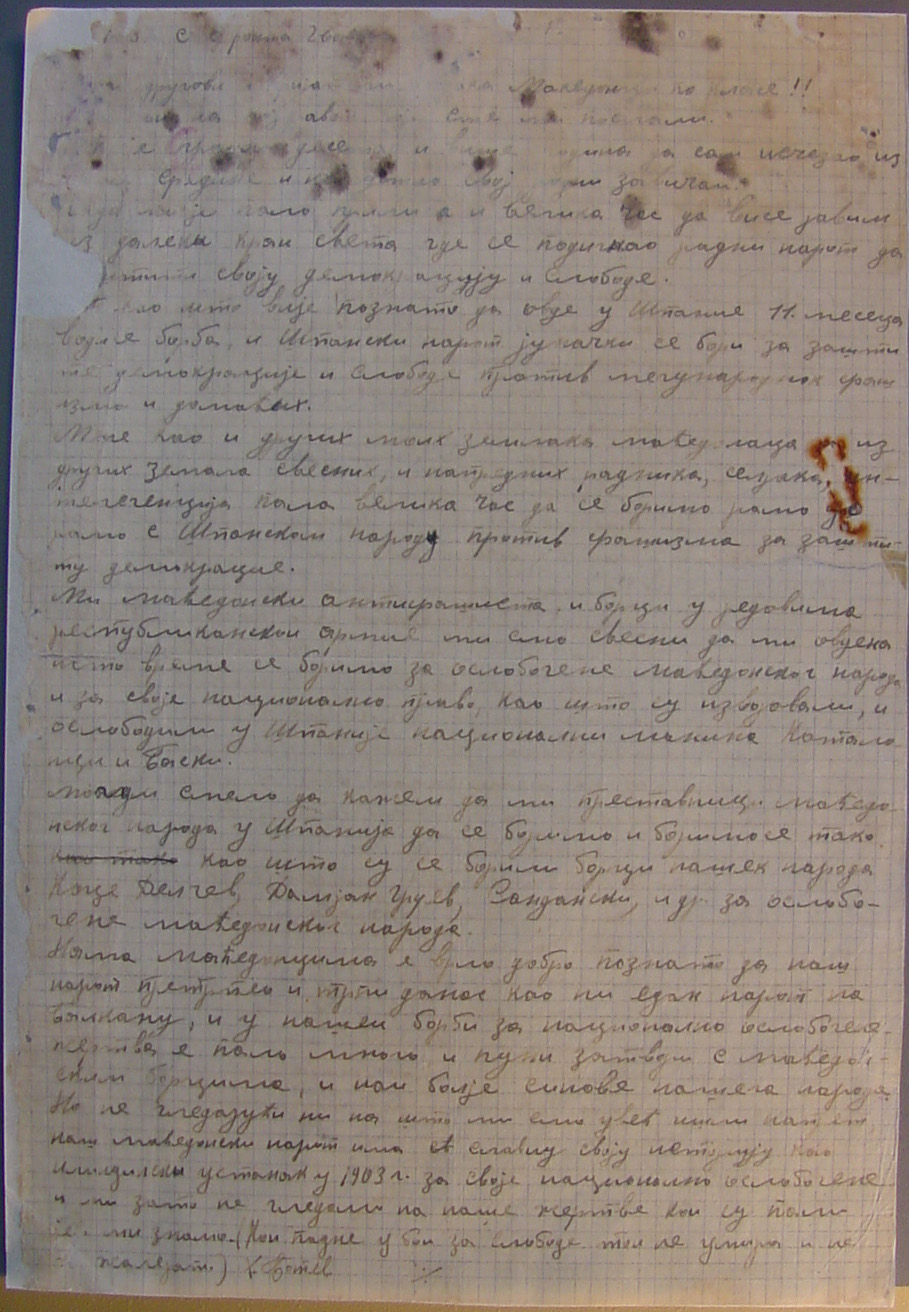 С фронта
другови Македонци по класе!!
сте ме
е и више да сам исчезао из
средине и свој родни завичај.
мало и велика час да висе јавим
из далеки краи света где се подигнао радни нарот да
своју демократију и слободе.
као што вије познато да овде у Шпание 11. месеца
води се борба, и Шпански нарот јуначки се бори за зашти
те демокрације и слободе против меѓународнок фаш
изма и домаћих.
Мене као и других моих земљака маћедонаца из
других земаља свесних, и напредних радника, сељака, ин-
телегенција пала велика час да се боримо рамо до
рамо с Шпанским народу против фашизма за зашти-
ту демокрацие.
Ми маћедонски антифашиста и борци у редовима
републиканскои армие ми смо свесни да ми овдена
исто време се боримо за ослобогене маћедонског народа
и за своје национално право, као што су извојовали, и
ослободили у Шпаније национални мањина Катало
нци и Баски.
Могу смело да кажем да ми преставници маћедо-
нског народа у Шпаније да се боримо и боримосе тако
као тако као што су се борили борци нашек народа
Гоце Делчев, Дамјан Груев, Сандански, и др. за ослобо-
гене маћедонског народа.
Нама маћедонцима е врло добро познато да наш
нарот претрпео и трпи данас као ни едан нарот на
Балкану, и у нашеи борби за национално ослобогене-
жертва е пало много и пуни затводи с маћедон-
ским борцима, и наи боље синове нашега народа.
Но не гледајући ни на што ми смо увек ишли напред,
наш маћедонски нарот има славну своју историју као
илиндески устанак у 1903 г. за своје национално ослобогене
и ми зато не гледамо на наше жертве кои су пали
је. ми знамо. (Кои падне у бои за слободе тои не умира и не
жалејат.) Х. Ботев ·/·